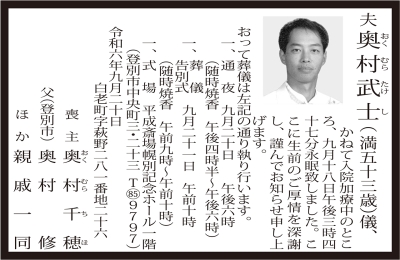 夫 奥村武士(満五十三歳)儀、
おく むら たけ し
かねて入院加療中のとこ
ろ、九月十八日午後三時四
十七分永眠致しました。こ
こに生前のご厚情を深謝
し、謹んでお知らせ申し上
げます。
おって葬儀は左記の通り執り行います。
一、通夜 九月二十日 午後六時
(随時焼香 午後四時半~午後六時)
一、葬儀告別式 九月二十一日 午前十時
(随時焼香 午前九時~午前十時)
一、式場 平成斎場幌別記念ホール一階
(登別市中央町三・二十三 T85 9797)
令和六年九月二十日
白老町字萩野二八一番地二十六
喪主 奥村千穂
おく むら ち ほ
父(登別市) 奥村 修
ほか 親戚一同